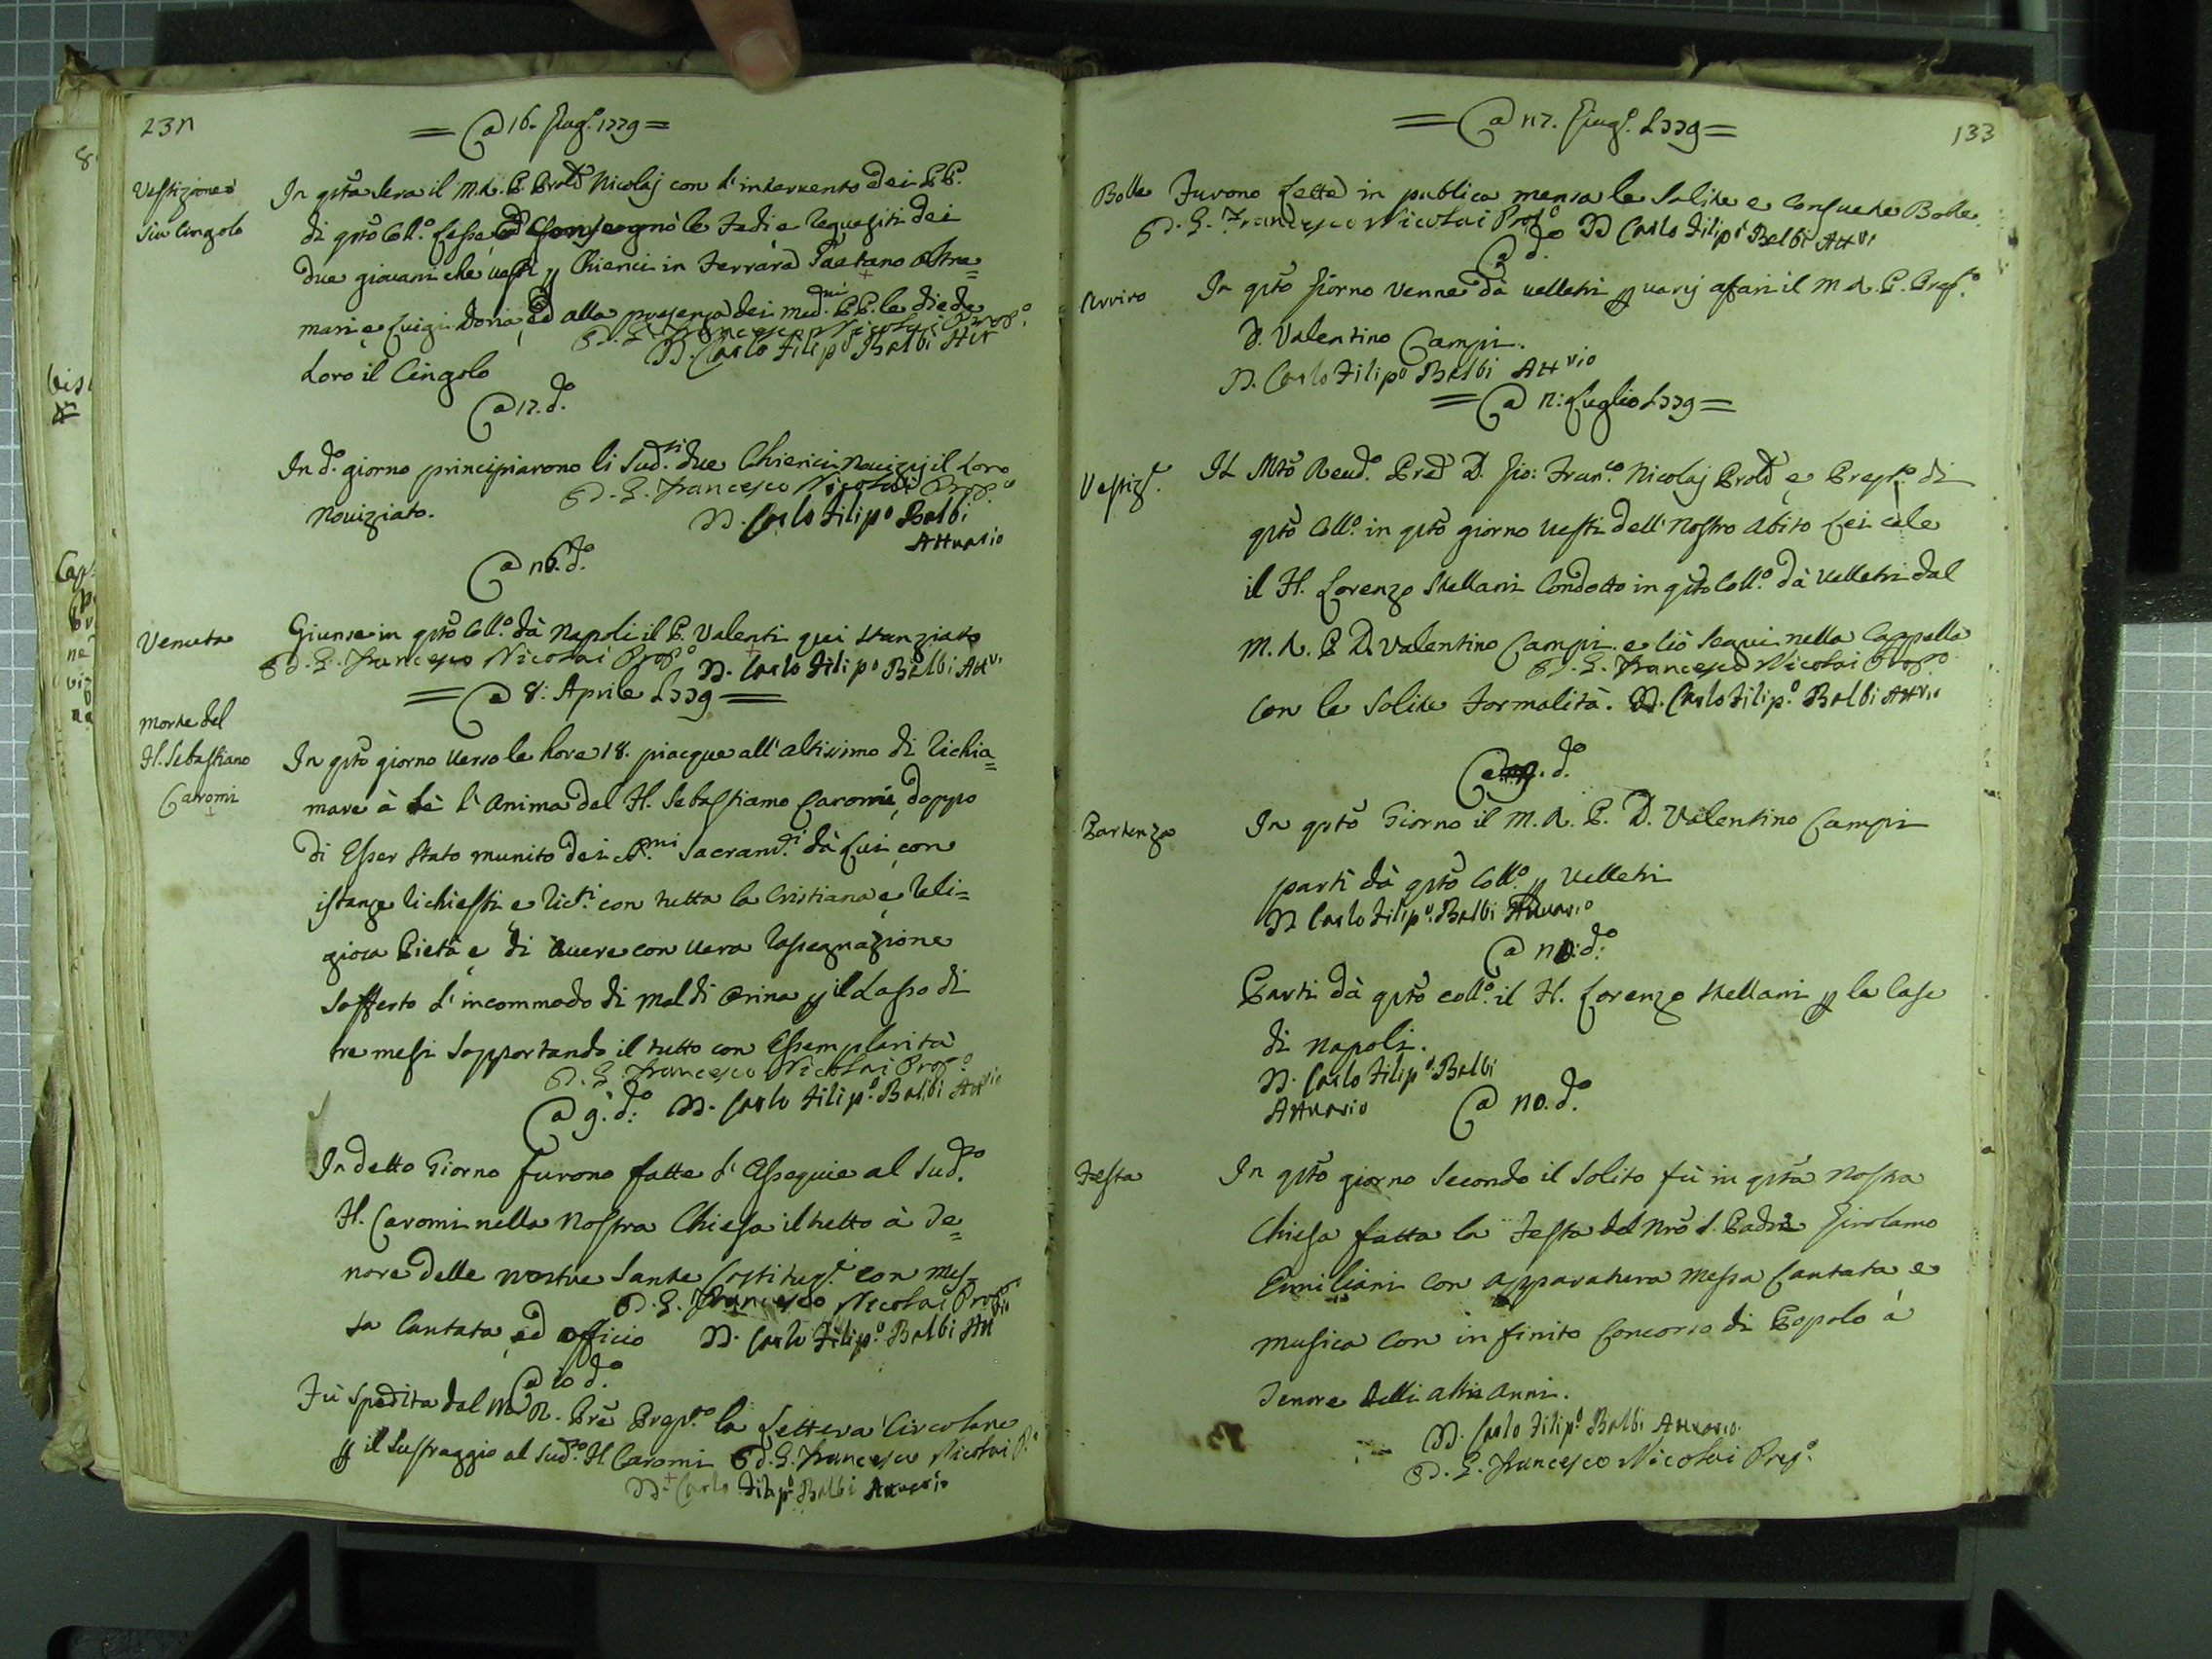 23n
= @ 16. Giug.o 1779 =
Vestizione ò
sia Cingolo
In q̃sta sera il M.R.P. Prold Nicolaj con l'intervento dei PP.
di q̃sto Coll.o lesse ed Consegnò le Fedi e Requesiti dei
due giovani che vestì p Chierici in Ferrara Gaetano oltre=
mari e Luigi Doria, ed alla presenza dei med.mi PP. le diede
D. G. Francesco Nicolai Prop.o
D. Carlo Filipo Balbi Att
Loro il Cingolo
@ 17. d.o
In d.o giorno principiarono li Sud.ti due Chierici Novizij il loro
D. G. Francesco Nicolai Prop.o
Noviziato.
D. Carlo Filipo Balbi
Attuario
@ n6. d.o
Venuta
Giunse in q̃sto Coll.o dà Napoli il P. Valenti qui stanziato
D. G. Francesco Nicolai Prop.o D. Carlo Filipo Balbi Att.
= @ 8: Aprile 1779 =
Morte del
H. Sebastiano
Caromi
In q̃sto giorno verso le hore 18. piacque all'altissimo di richia=
mare à sè l'Anima del H. Sebastiano Caromi, doppo
di Esser stato munito dei SS.mi Sacram.ti dà lui con
istanze richiesti e ric.ti con tutta la Cristiana e Reli=
giosa Pietà e di avere con vera rassegnazione
sofferto l'incommodo di mal di Orina p il Lasso di
tre mesi sopportando il tutto con Essemplarità
D. G. Francesco Nicolai Prop.o
@ 9. d.o D. Carlo Filip.o Balbi Att.rio
In detto Giorno furono fatte l'Essequie al Sud.to
H. Caromi nella Nostra Chiesa il tutto à te=
nore delle nostre Sante Costituz.i con Mes-
D. G. Francesco Nicolai Prop.o
sa Cantata, ed officio D. Carlo Filip.o Balbi Att.rio
@ 10 d.o
Fù spedita dal M R. Prẽ Prep.to la Lettera Circolare
p il Suffraggio al Sud.to H Caromi D. G. Francesco Nicolai P.o
D. Carlo Filip.o Balbi Attuario
133
= @ n7. Giug.o 1779 =
Bolle
Furono Lette in publica mensa le Solite e Consuete Bolle
D. G. Francesco Nicolai Prop.o D Carlo Filip.o Balbi Att.ri
@ d.o
Arrivo
In q̃sto Giorno venne dà velletri p varij afari il M R. P. Prep.o
D. Valentino Campi.
D. Carlo Filipo Balbi Att.rio
= @ n: Luglio 1779 =
Vestiz.e
Il Mto Revd.o Pred D. Gio: Fran.co Nicolaj Prold e Prep.to di
q̃sto Coll.o in q̃sto giorno vestì dell'Nostro Abito Lei cale
il H. Lorenzo Stellani Condotto in q̃sto Coll.o dà velletri dal
M. R. P D. Valentino Campi e ciò seguì nella Cappella
D. G. Francesco Nicolai Prop.o
con le solite Formalità. D. Carlo Filip.o Balbi Att.rio
@ d.o
Partenza
In q̃sto Giorno il M. R. P. D. Valentino Campi
partì dà q̃sto Coll.o p Velletri
D Carlo Filip.o Balbi Attuario
@ d.o
Partì dà q̃sto coll.o il H. Lorenzo Stellani p la Casa
di Napoli.
D. Carlo Filip.o Balbi
Attuario
@ no. d.o
Festa
In q̃sto giorno secondo il solito fù in q̃sta Nostra
Chiesa fatta la Festa del Nrõ S. Padre Girolamo
Emiliani con apparatura Messa Cantata e
musica con infinito Concorso di Popolo à
Tenore delli altri Anni.
D. Carlo Filip.o Balbi Attuario.
D. G. Francesco Nicolai Prep.o